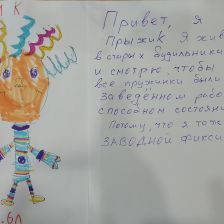 И К
Привет, я
Прыжик я жив
в старых будильника
и смотрю, чтобы
все пружинки были
заведённом рабо
способном состояни
Потому, что я тоже
ЗАВОДНОЙ ФИКСИ
.6л